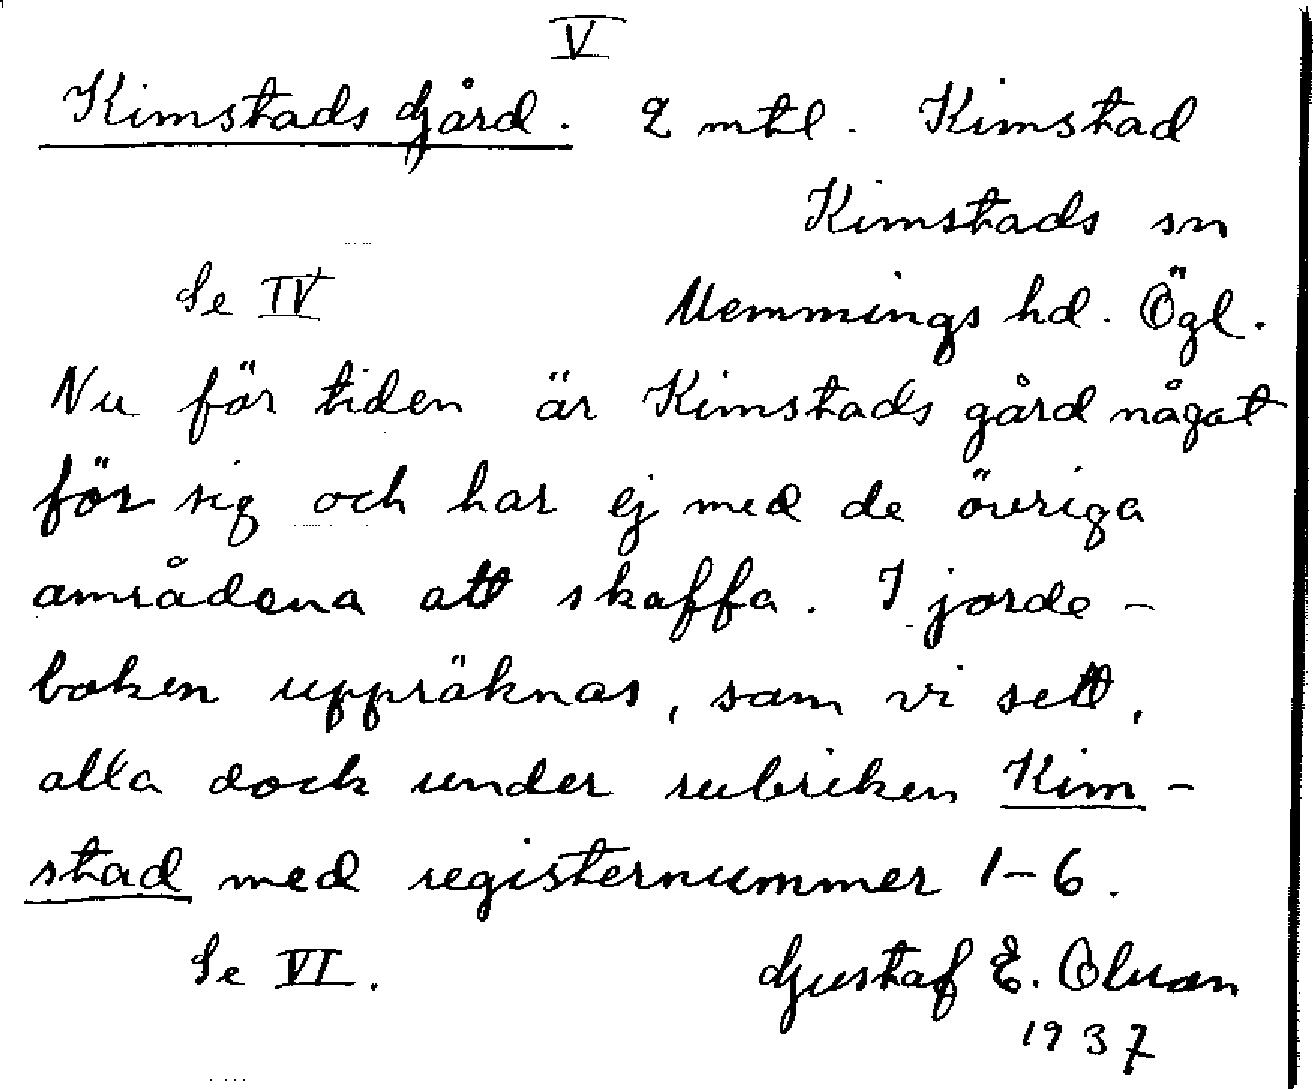 V
Kimstads Gård. 2 mtl. Kimstad
Kimstads sn
Se IV Memmings hd. Ögl.
Nu för tiden är Kimstads gård något
för sig och har ej med de övriga
områdena att skaffa. I jorde-
boken uppräknas, som vi sett,
alla dock under rubriken Kim-
stad med registernummer 1-6.
Se VI. Gustaf E. Olson
1937